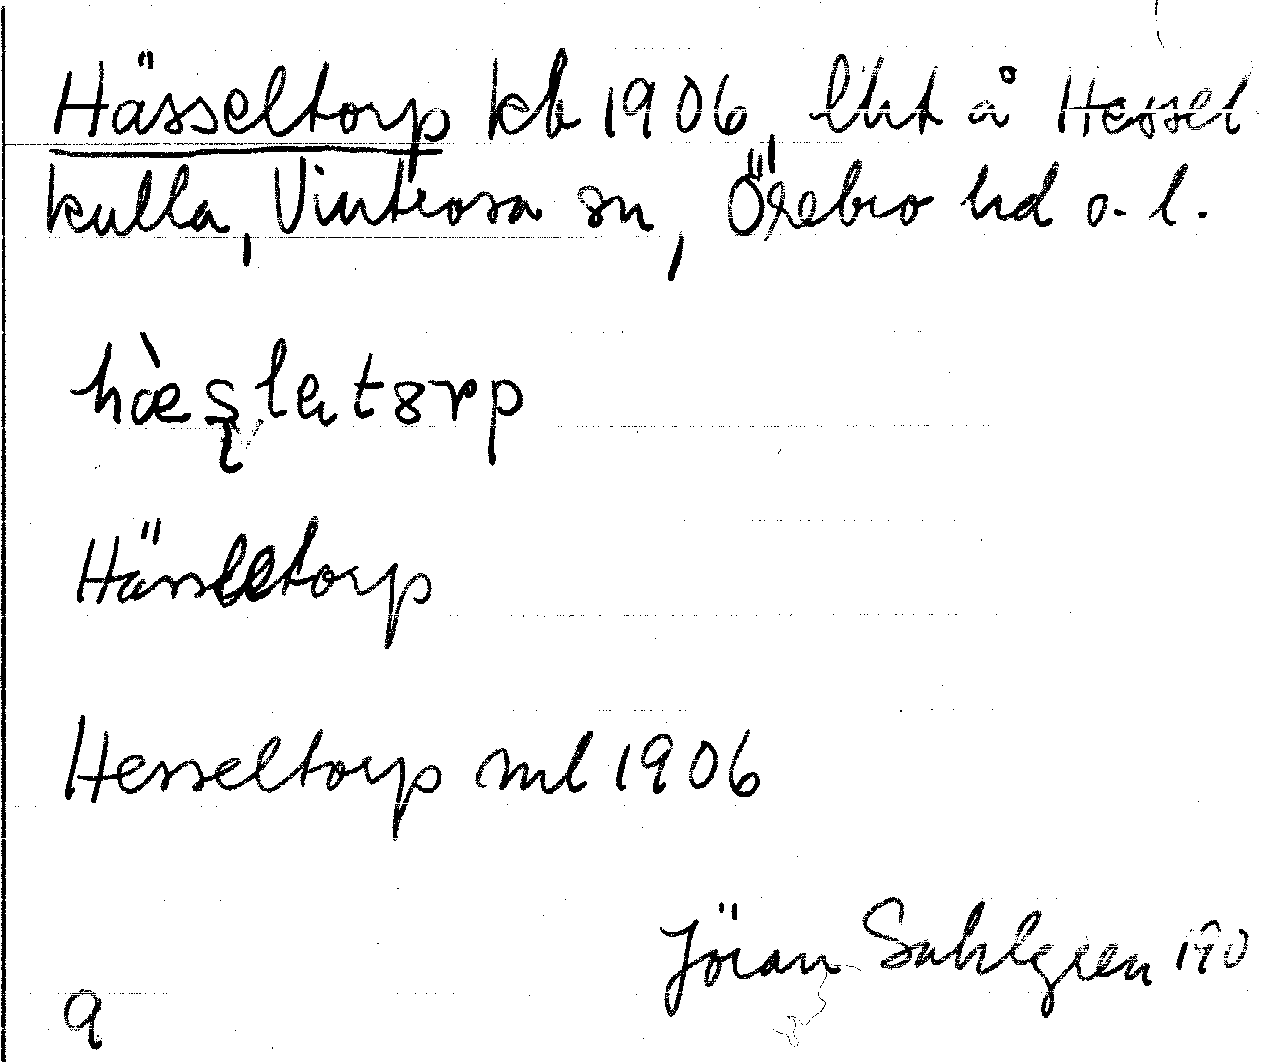 Hässeltorp kb 1906, lht å Hessel
kulla, Vintrosa sn, Örebro hd o. l.
Hässletorp
Hesseltorp ml 1906
Jöran Sahlgren
a